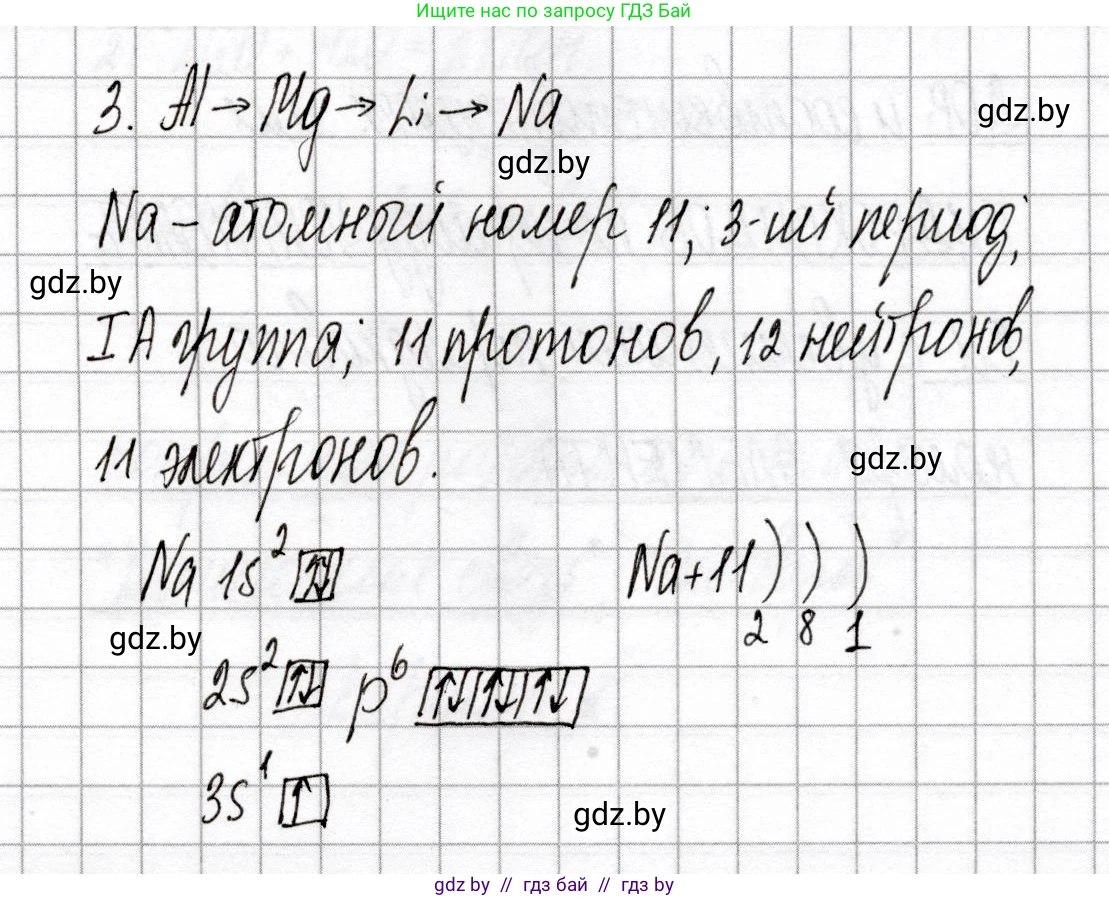 Ищите нас по запросу ГДЗ Бай
3. Al → Mg → Li → Na
gdz.by
gdz.by
Na – атомный номер 11; 3-ий период;
gdz.by
IA группа; 11 протонов, 12 нейтронов,
11 электронов.
gdz.by
Na 1s² ↑↓
Na+11 ) ) )
2 8 1
gdz.by
2s² ↑↓ p⁶ ↑↓ ↑↓ ↑↓
3s¹ ↑
gdz.by
gdz by // гдз бай // гдз by